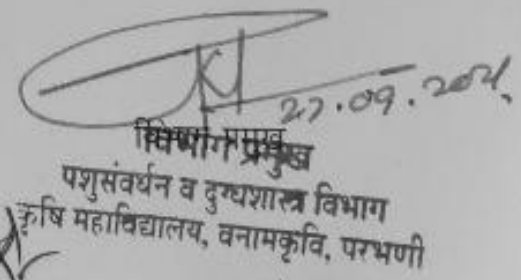 27.09.2021
विभाग प्रमुख
पशुसंवर्धन व दुग्धशास्त्र विभाग
कृषि महाविद्यालय, वनामकृवि, परभणी